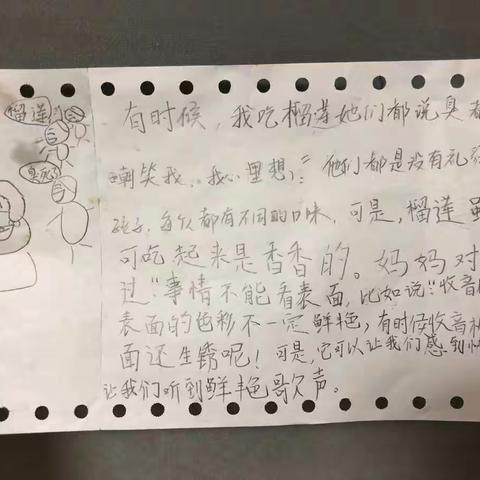 榴莲
臭死
有时候，我吃榴莲她们都说臭都
嘲笑我。我心里想："他们都是没有礼
孩子，每个人都有不同的口味，可是，榴莲虽
可吃起来是香香的。妈妈对
过"事情不能看表面，比如说："收音机
表面的色彩不一定鲜艳，有时候收音机
面还生锈呢！可是，它可以让我们感到快
让我们听到鲜艳歌声。